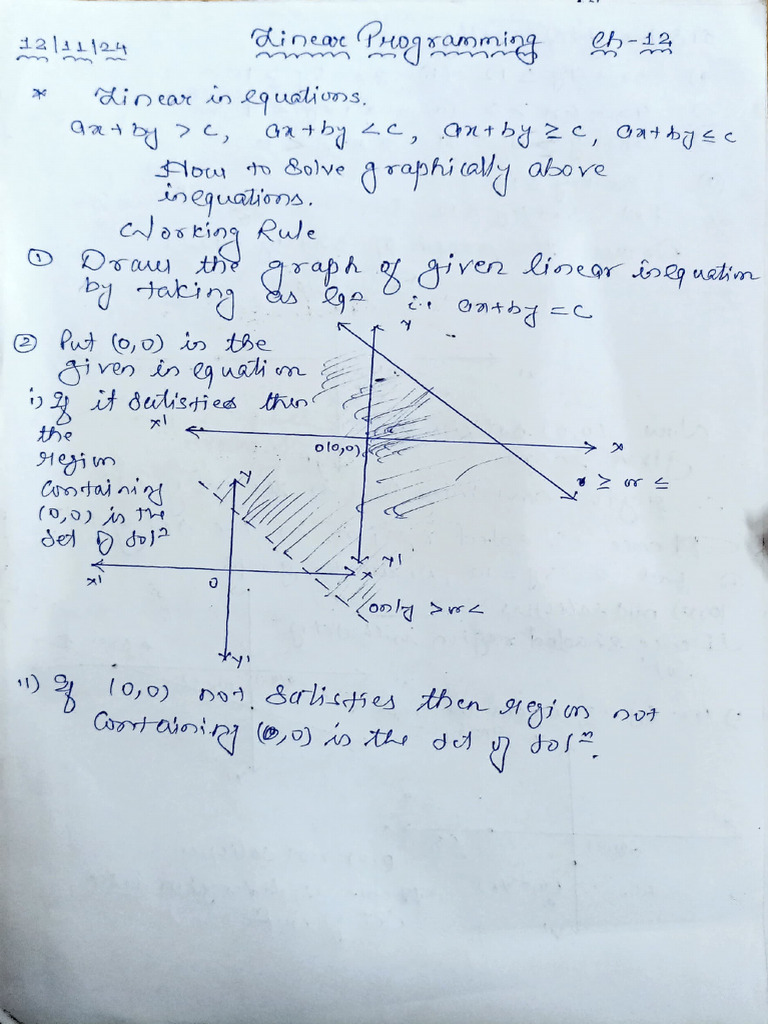 12/11/24 Linear Programming Ch-12
* Linear in equations.
ax+by > c, ax+by < c, ax+by ≥ c, ax+by ≤ c
How to Solve graphically above
inequations.
Working Rule
① Draw the graph of given linear inequation
by taking as eqn i.e ax+by = c
② Put (0,0) in the
given in equation
i) If it Satisfies then
the
region
Containing
(0,0) is the
Set of Solⁿ
Y
X'
O(0,0)
X
≥ or ≤
Y'
Y
X'
O
X
only > or <
Y'
ii) If (0,0) not Satisfies then region not
Containing (0,0) is the Set of Solⁿ.